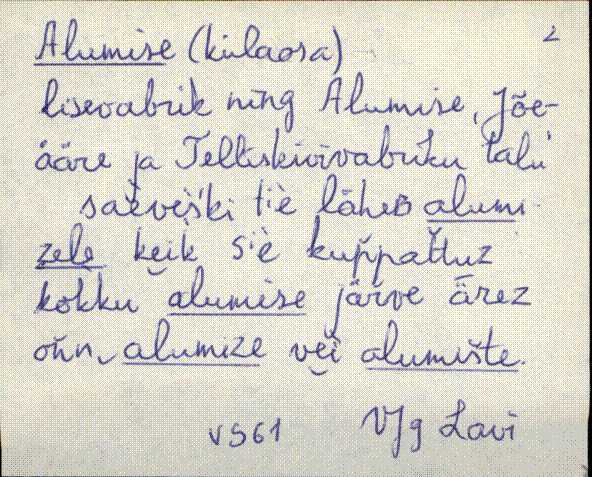 2
Alumise (külaosa)
lisevabrik ning Alumise, Jõe-
ääre ja Telliskivivabriku talu
saèveški tiè läheʙ alumi-
zele keik siè kuppattuz
kokku alumise järve ärez
oǹn, alumize vei alumište.
VS61 VJg Lavi